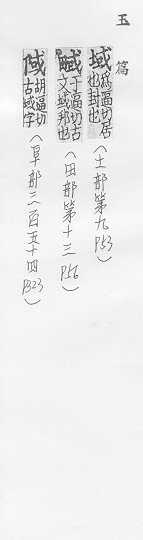 玉篇
域為逼切居也封也(土部第九P53)
于逼切古文域邦也(田部第十三P56)
胡逼切古域字(阜部三百五十四P323)